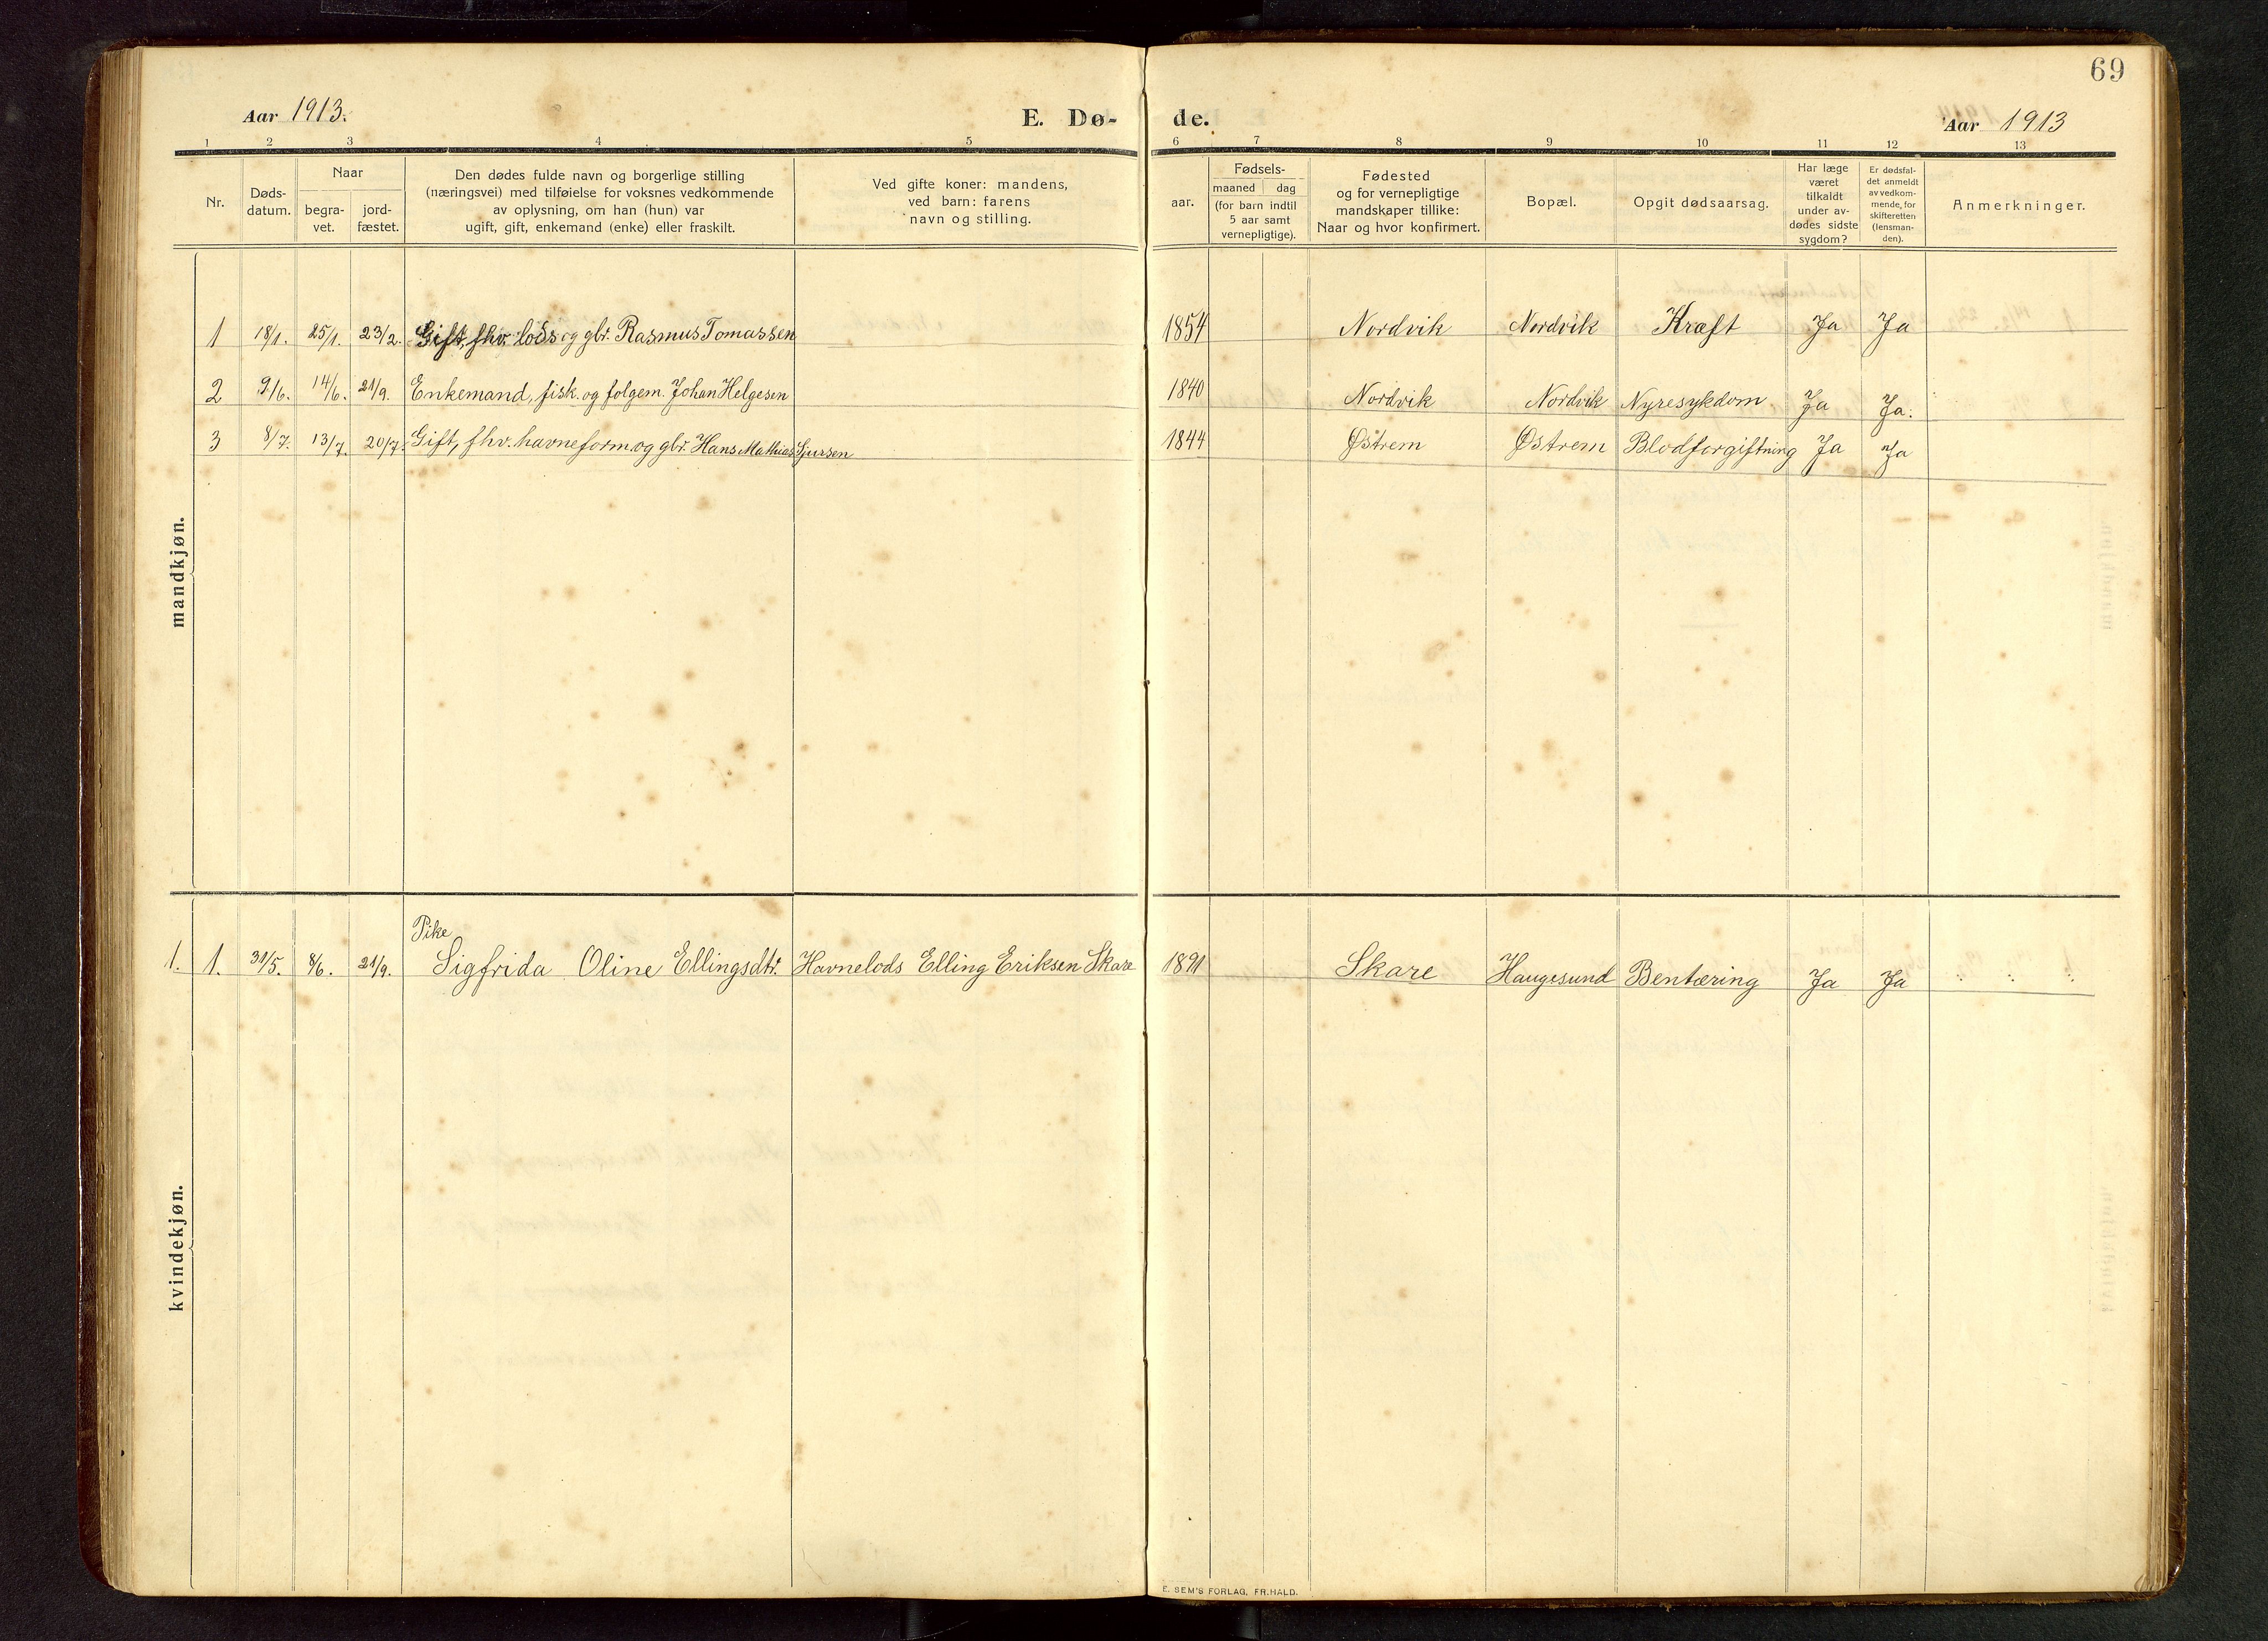 69
Aar 1913. E. Dø- de. Aar 1913
1 2 3 4 5 6 7 8 9 10 11 12 13
Nr.
Døds-
datum.
Naar
begra-
vet.
jord-
fæstet.
Den dødes fulde navn og borgerlige stilling
(næringsvei) med tilføielse for voksnes vedkommende
av oplysning, om han (hun) var
ugift, gift, enkemand (enke) eller fraskilt.
Ved gifte koner: mandens,
ved barn: farens
navn og stilling.
aar.
Fødsels-
maaned dag
(for barn indtil
5 aar samt
vernepligtige).
Fødested
og for vernepligtige
mandskaper tillike:
Naar og hvor konfirmert.
Bopæl.
Opgit dødsaarsag.
Har læge
været
tilkaldt
under av-
dødes sidste
sygdom?
Er dødsfal-
det anmeldt
av vedkom-
mende, for
skifteretten
(lensman-
den).
Anmerkninger.
mandkjøn.
1 18/1. 25/1. 23/2. Gift, fhv. lods og gbr. Rasmus Tomassen 1854 Nordvik Nordvik Kræft Ja Ja
2 9/6. 14/6. 21/9. Enkemand, fisk. og folgem. Johan Helgesen 1840 Nordvik Nordvik Nyresykdom Ja Ja.
3 8/7. 13/7. 20/7. Gift, fhv. havneform. og gbr. Hans Mathias Sjursen 1844 Østrem Østrem Blodforgiftning Ja Ja
kvindekjøn.
Pike
1. 1. 31/5. 8/6. 21/9. Sigfrida Oline Ellingsdtr. Havnelods Elling Eriksen Skare 1891 Skare Haugesund Bentæring Ja Ja
E. SEM'S FORLAG, FR.HALD.